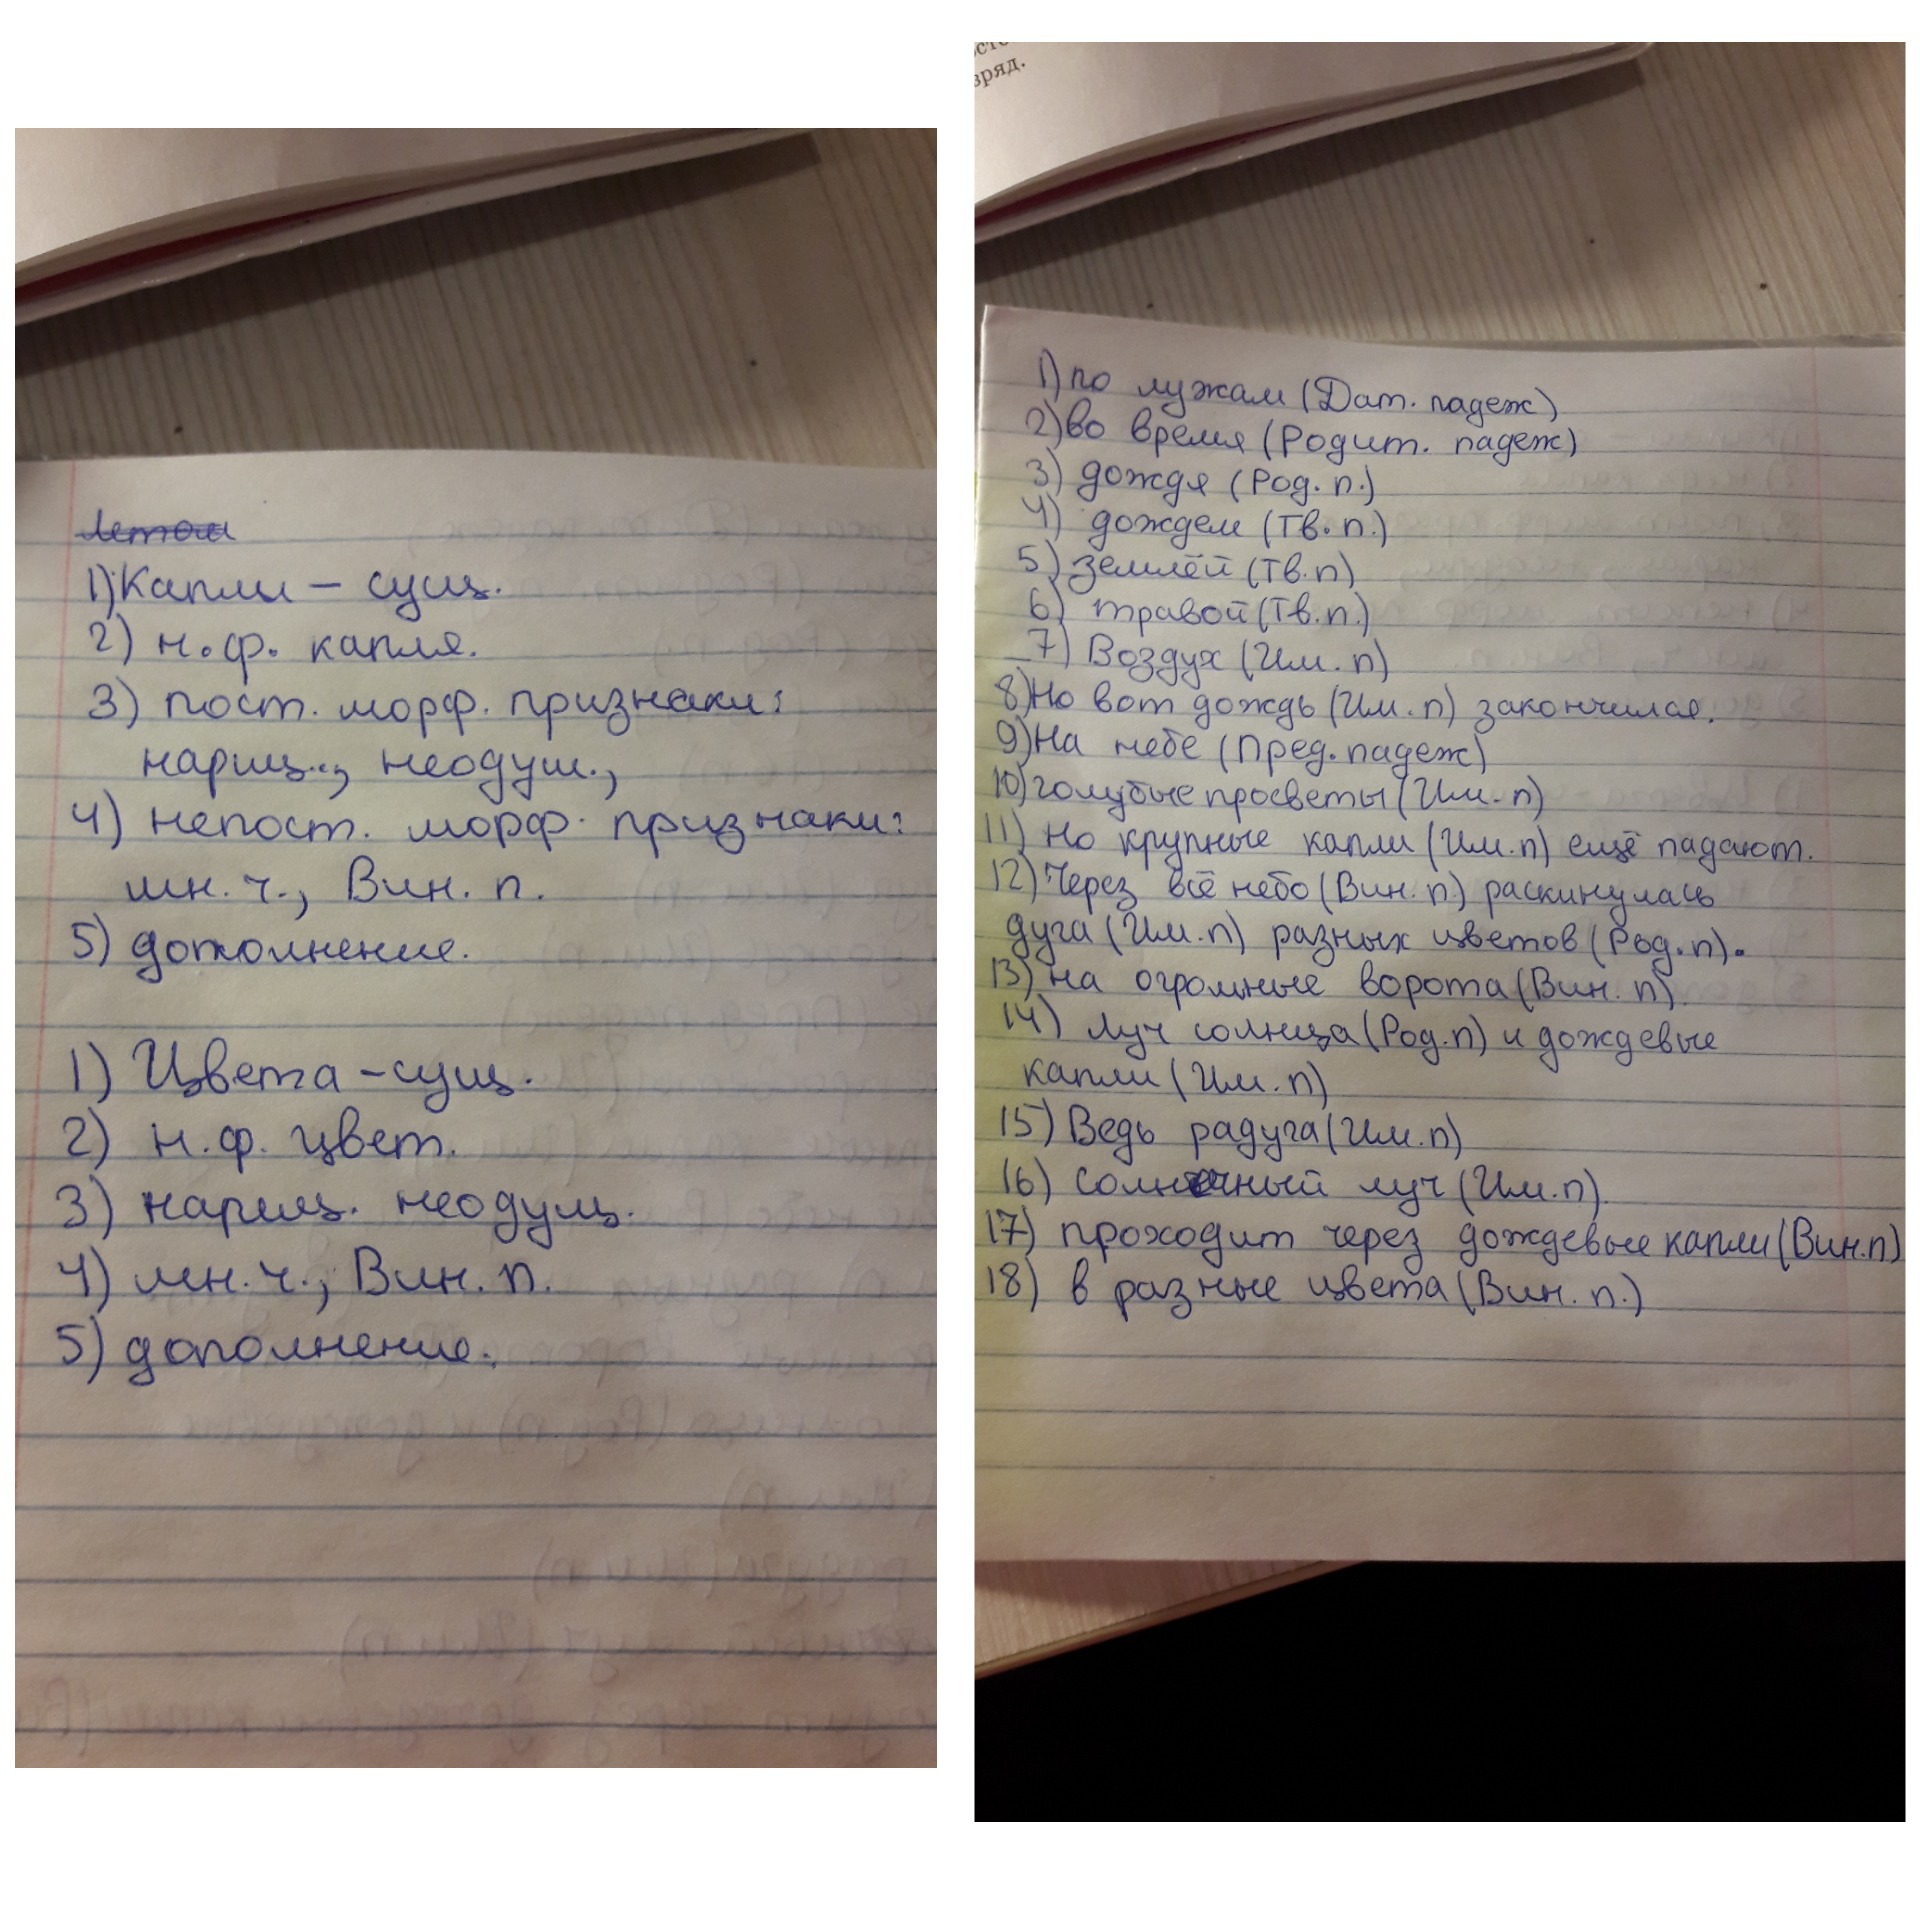 летом
1) Капли – сущ.
2) н.ф. капля.
3) пост. морф. признаки:
нариц., неодуш.,
4) непост. морф. признаки:
мн. ч., Вин. п.
5) дополнение.
1) Цвета – сущ.
2) н.ф. цвет.
3) нариц. неодущ.
4) мн. ч., Вин. п.
5) дополнение.
зряд.
1) по лужам (Дат. падеж)
2) во время (Родит. падеж)
3) дождя (Род. п.)
4) дождем (Тв. п.)
5) землёй (Тв. п)
6) травой (Тв. п.)
7) Воздух (Им. п)
8) Но вот дождь (Им. п) закончился.
9) На небе (Пред. падеж)
10) голубые просветы (Им. п)
11) Но крупные капли (Им. п) ещё падают.
12) Через всё небо (Вин. п.) раскинулась
дуга (Им. п) разных цветов (Род. п).
13) на огромные ворота (Вин. п)
14) Луч солнца (Род. п) и дождевые
капли (Им. п)
15) Ведь радуга (Им. п)
16) солнечный луч (Им. п).
17) проходит через дождевые капли (Вин. п)
18) в разные цвета (Вин. п.)